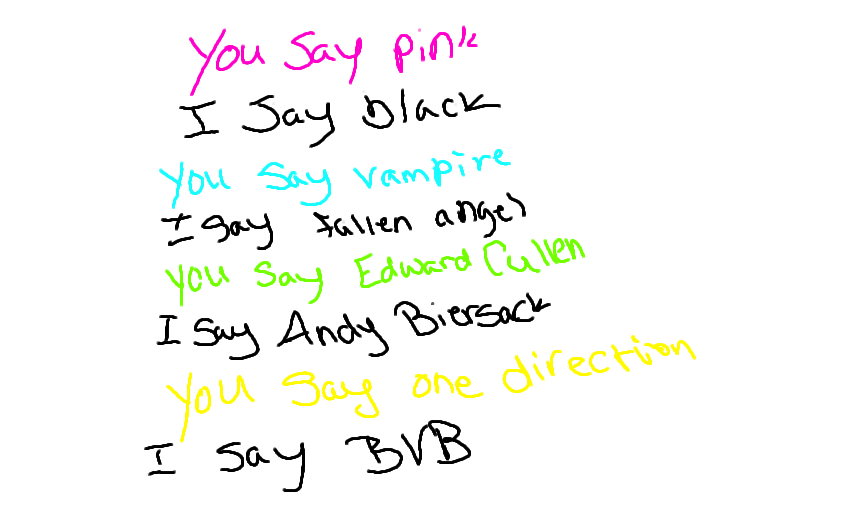 You say pink
I say black
You say vampire
I say fallen angel
You say Edward Cullen
I say Andy Biersack
You say one direction
I say BVB